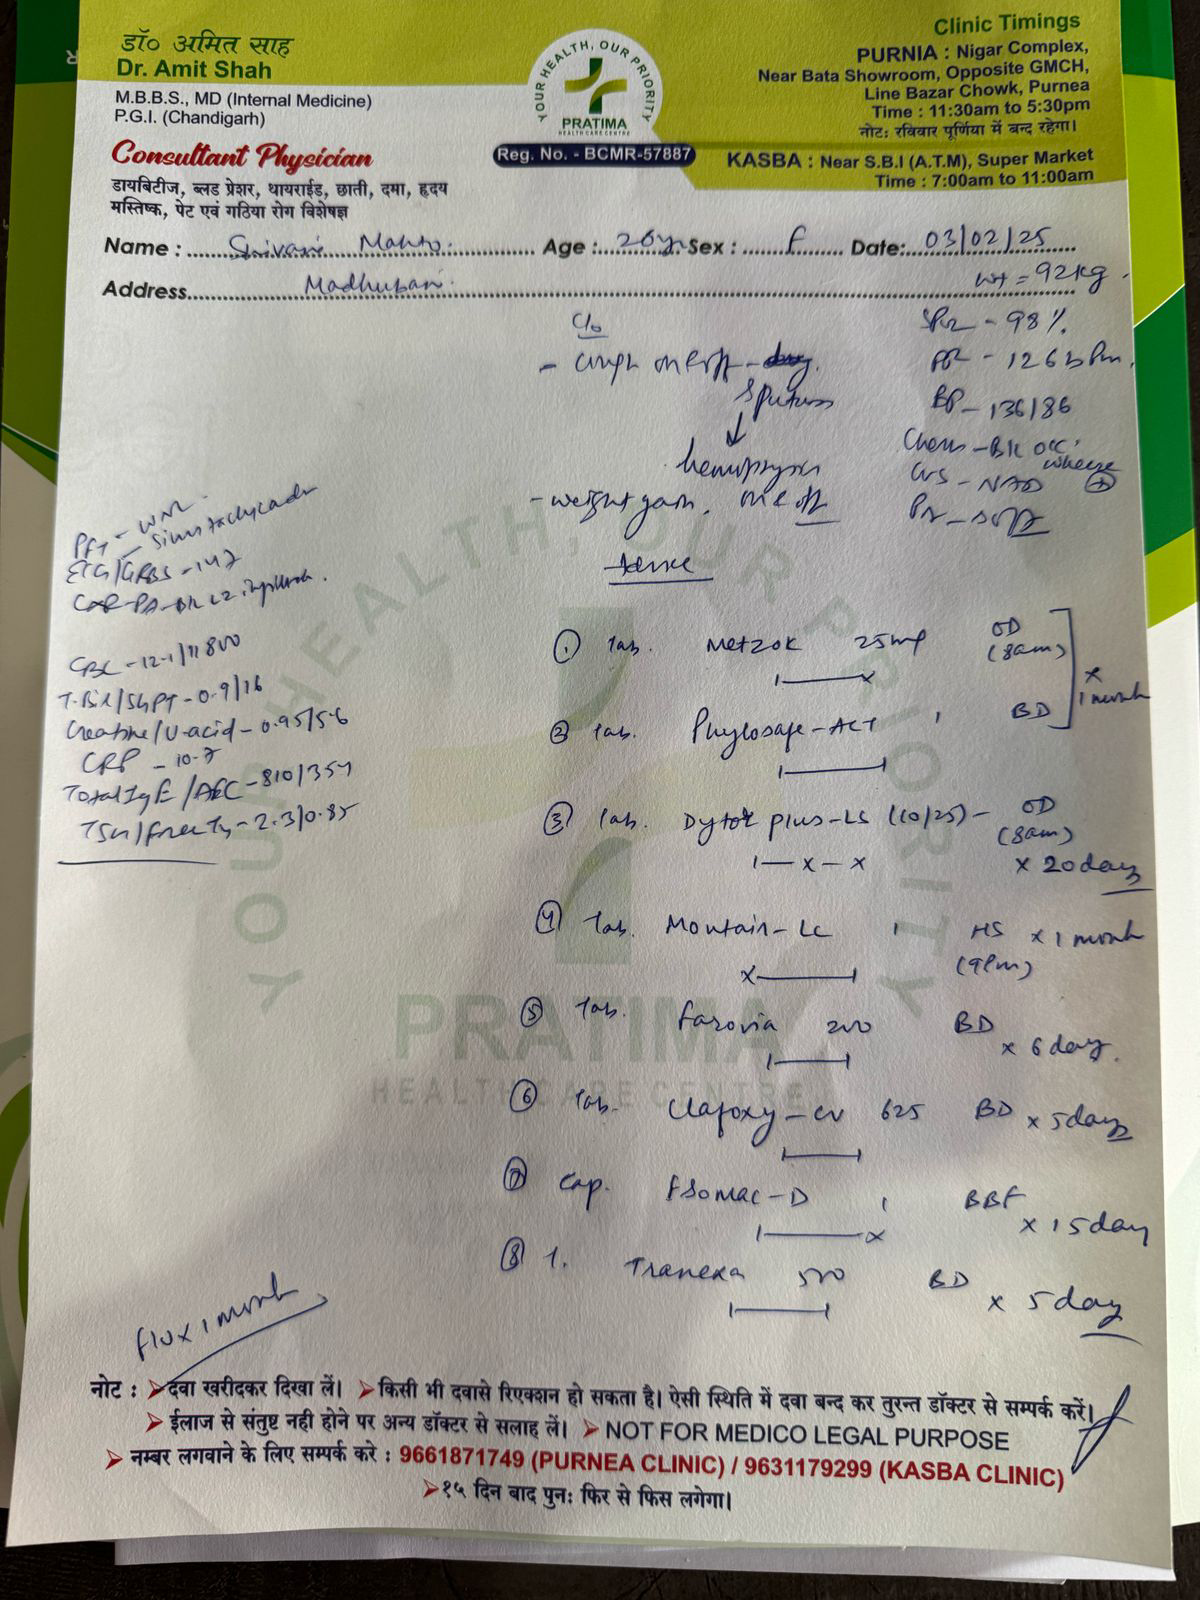 डॉ० अमित साह
Dr. Amit Shah
M.B.B.S., MD (Internal Medicine)
P.G.I. (Chandigarh)
Consultant Physician
डायबिटीज, ब्लड प्रेशर, थायराईड, छाती, दमा, हृदय
मस्तिष्क, पेट एवं गठिया रोग विशेषज्ञ
YOUR HEALTH, OUR PRIORITY
PRATIMA
HEALTH CARE CENTRE
Reg. No. - BCMR-57887
Clinic Timings
PURNIA : Nigar Complex,
Near Bata Showroom, Opposite GMCH,
Line Bazar Chowk, Purnea
Time : 11:30am to 5:30pm
नोट: रविवार पूर्णिया में बन्द रहेगा।
KASBA : Near S.B.I (A.T.M), Super Market
Time : 7:00am to 11:00am
Name : Mahto. Age : 26y. Sex : F Date: 03/02/25
Address Madhubani
wt = 92kg
c/o
- cough on & off -
sputum
↓
hemoptysis
- weight gain. on & off
SPO2 - 98%
PR - 126 bpm.
BP - 136/86
Chest - B/L occ.
wheeze +
CVS - NAD
PA - soft
PFT - WNL
ECG/GRBS - 147
Sinus tachycardia
CXR-PA - B/L
CBC - 12.1/11800
T.Bil/SGPT - 0.9/16
Creatine/U-acid - 0.95/5.6
CRP - 10.7
Total IgE/AEC - 810/354
TSH/Free T4 - 2.3/0.85
Advice
① Tab. Metzok 25mg OD
(8am)
② Tab. Phylosafe-ACT 1 BD
x 1 month
③ Tab. Dytor plus-LS (10/25) - OD
(8am)
x 20 days
④ Tab. Montair-LC 1 HS x 1 month
(9pm)
⑤ Tab. Farovia 200 BD
x 6 day.
⑥ Tab. Clafoxy-CV 625 BD x 5 days
⑦ Cap. Esomac-D 1 BBF
x 15 day
⑧ T. Tranexa 500 BD
x 5 day
YOUR HEALTH, OUR PRIORITY
PRATIMA
HEALTH CARE CENTRE
नोट : ➤दवा खरीदकर दिखा लें। ➤किसी भी दवासे रिएक्शन हो सकता है। ऐसी स्थिति में दवा बन्द कर तुरन्त डॉक्टर से सम्पर्क करें।
➤ईलाज से संतुष्ट नही होने पर अन्य डॉक्टर से सलाह लें। ➤ NOT FOR MEDICO LEGAL PURPOSE
➤ नम्बर लगवाने के लिए सम्पर्क करे : 9661871749 (PURNEA CLINIC) / 9631179299 (KASBA CLINIC)
➤१५ दिन बाद पुनः फिर से फिस लगेगा।